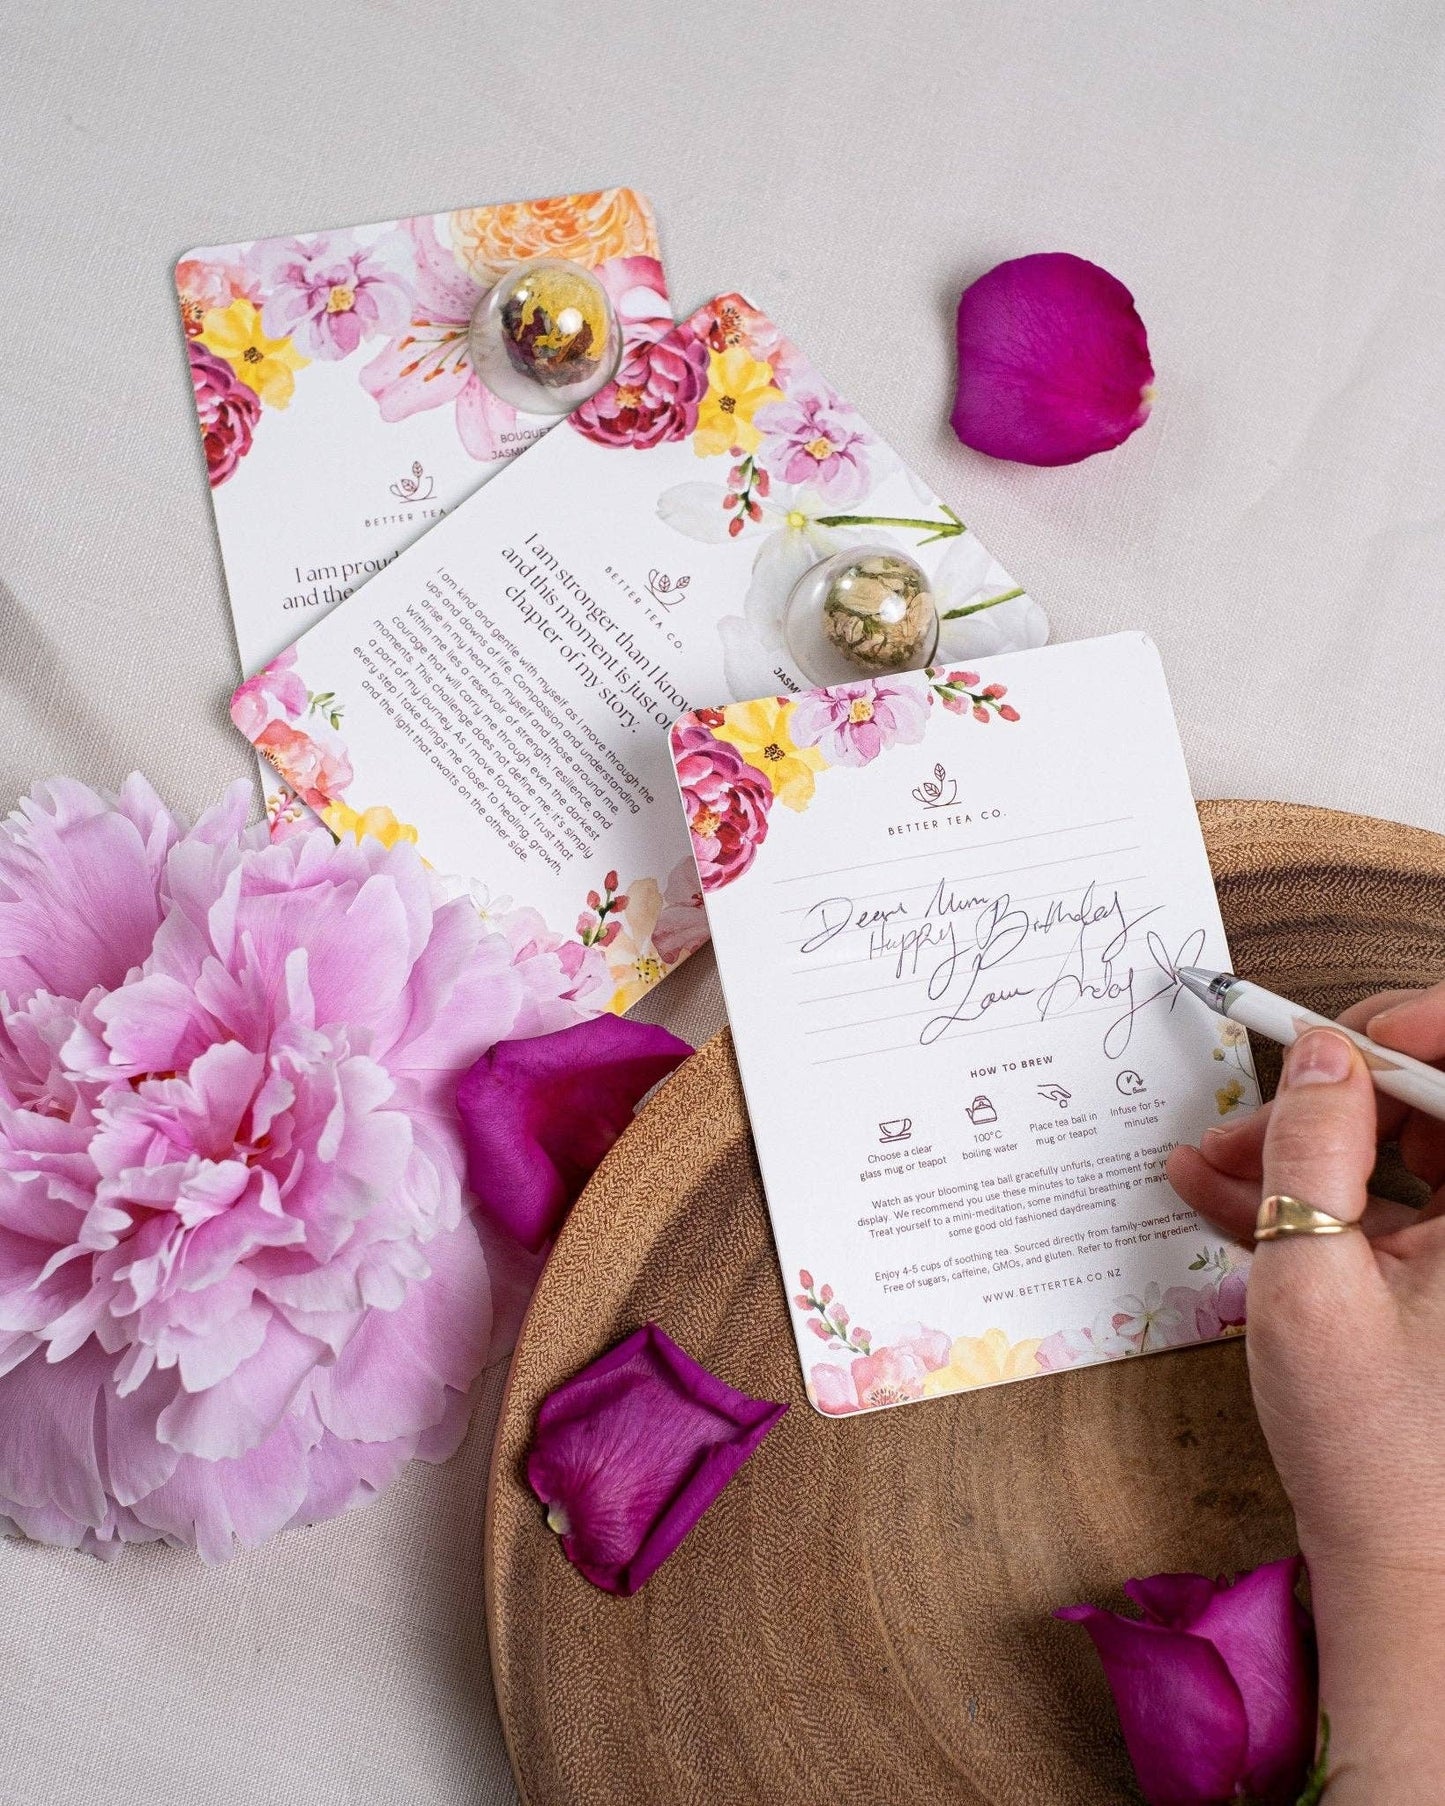 BOUQUET
BETTER TEA
I am proud
and the
BETTER TEA CO.
I am stronger than I know
and this moment is just on
chapter of my story.
I am kind and gentle with myself as I move through the
ups and downs of life. Compassion and understanding
arise in my heart for myself and those around me
Within me lies a reservoir of strength, resilience, and
courage that will carry me through even the darkest
moments. This challenge does not define me, it's simply
a part of my journey. As I move forward, I trust that
every step I take brings me closer to healing, growth,
and the light that awaits on the other side.
BETTER TEA CO.
Dear Mum
Happy Birthday
Love
HOW TO BREW
Choose a clear
glass mug or teapot
100°C
boiling water
Place tea ball in
mug or teapot
Infuse for 5+
minutes
Watch as your blooming tea ball gracefully unfurls, creating a beautiful
display. We recommend you use these minutes to take a moment for
Treat yourself to a mini-meditation, some mindful breathing or
some good old fashioned daydreaming
Enjoy 4-5 cups of soothing tea. Sourced directly from family-owned farms
Free of sugars, caffeine, GMOs, and gluten. Refer to front for ingredient.
WWW.BETTERTEA.CO.NZ